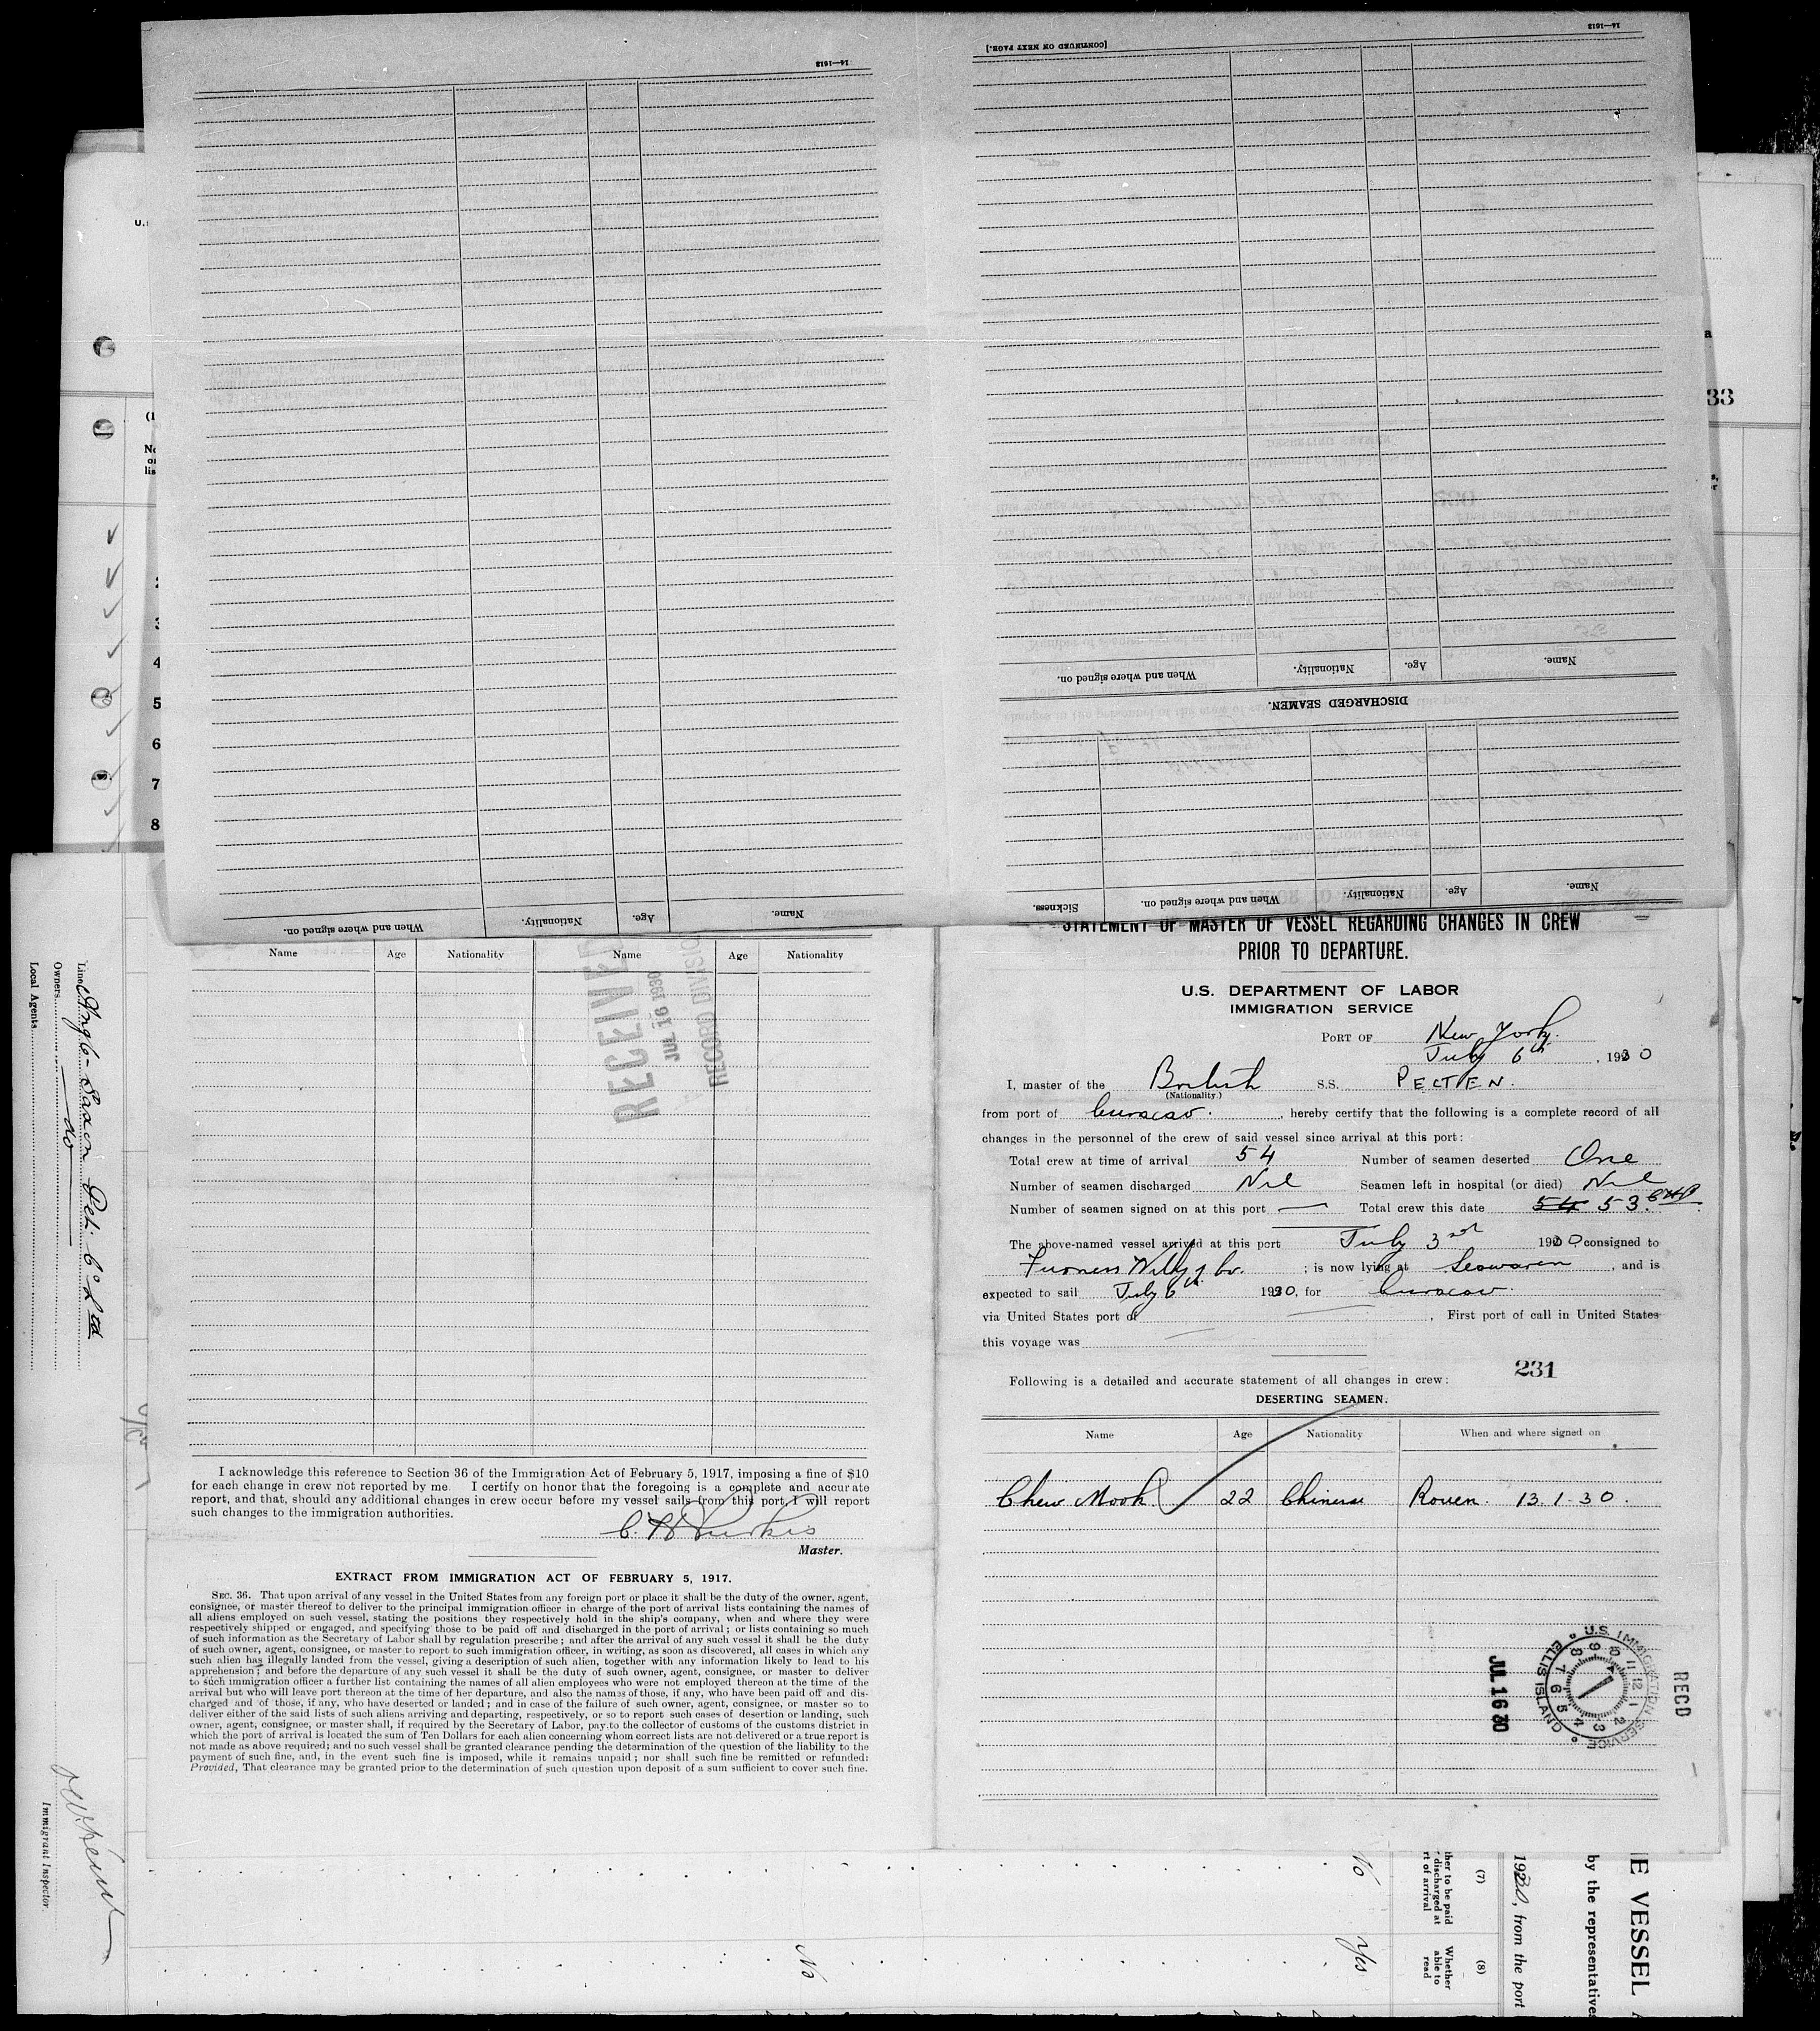 14—1613
[CONTINUED ON NEXT PAGE.]
14—1613
Name. Age. Nationality. When and where signed on.
DISCHARGED SEAMEN.
Name. Age. Nationality. When and where signed on.
Name. Age. Nationality. When and where signed on. Sickness.
33
4
5
6
7
8
Line Anglo-Saxon Pet. Co Ltd
Owners do
Local Agents
Immigrant Inspector.
Name Age Nationality Name Age Nationality
RECEIVED
JUL 16 1930
RECORD DIVISION
I acknowledge this reference to Section 36 of the Immigration Act of February 5, 1917, imposing a fine of $10
for each change in crew not reported by me. I certify on honor that the foregoing is a complete and accurate
report, and that, should any additional changes in crew occur before my vessel sails from this port, I will report
such changes to the immigration authorities.
Master.
EXTRACT FROM IMMIGRATION ACT OF FEBRUARY 5, 1917.
SEC. 36. That upon arrival of any vessel in the United States from any foreign port or place it shall be the duty of the owner, agent,
consignee, or master thereof to deliver to the principal immigration officer in charge of the port of arrival lists containing the names of
all aliens employed on such vessel, stating the positions they respectively hold in the ship's company, when and where they were
respectively shipped or engaged, and specifying those to be paid off and discharged in the port of arrival; or lists containing so much
of such information as the Secretary of Labor shall by regulation prescribe; and after the arrival of any such vessel it shall be the duty
of such owner, agent, consignee, or master to report to such immigration officer, in writing, as soon as discovered, all cases in which any
such alien has illegally landed from the vessel, giving a description of such alien, together with any information likely to lead to his
apprehension; and before the departure of any such vessel it shall be the duty of such owner, agent, consignee, or master to deliver
to such immigration officer a further list containing the names of all alien employees who were not employed thereon at the time of the
arrival but who will leave port thereon at the time of her departure, and also the names of those, if any, who have been paid off and dis-
charged and of those, if any, who have deserted or landed; and in case of the failure of such owner, agent, consignee, or master so to
deliver either of the said lists of such aliens arriving and departing, respectively, or so to report such cases of desertion or landing, such
owner, agent, consignee, or master shall, if required by the Secretary of Labor, pay to the collector of customs of the customs district in
which the port of arrival is located the sum of Ten Dollars for each alien concerning whom correct lists are not delivered or a true report is
not made as above required; and no such vessel shall be granted clearance pending the determination of the question of the liability to the
payment of such fine, and, in the event such fine is imposed, while it remains unpaid; nor shall such fine be remitted or refunded:
Provided, That clearance may be granted prior to the determination of such question upon deposit of a sum sufficient to cover such fine.
STATEMENT OF MASTER OF VESSEL REGARDING CHANGES IN CREW
PRIOR TO DEPARTURE.
U.S. DEPARTMENT OF LABOR
IMMIGRATION SERVICE
PORT OF New York.
July 6th, 1930
I, master of the British S.S. PECTEN.
(Nationality.)
from port of Curacao. , hereby certify that the following is a complete record of all
changes in the personnel of the crew of said vessel since arrival at this port:
Total crew at time of arrival 54 Number of seamen deserted One
Number of seamen discharged Nil Seamen left in hospital (or died) Nil
Number of seamen signed on at this port — Total crew this date 54 53.
The above-named vessel arrived at this port July 3rd 1930, consigned to
Furness Withy & Co. ; is now lying at Sewaren , and is
expected to sail July 6th 1930, for Curacao.
via United States port of , First port of call in United States
this voyage was
231
Following is a detailed and accurate statement of all changes in crew:
DESERTING SEAMEN.
Name Age Nationality When and where signed on
Chew Mook 22 Chinese Rouen. 13.1.30.
U.S. IMMIGRATION SERVICE
ELLIS ISLAND
JUL 16 30
RECD
(7)
ther to be paid
discharged at
rt of arrival
(8)
Whether
able to
read
No
Yes
No
E VESSEL
by the representatives
1930, from the port